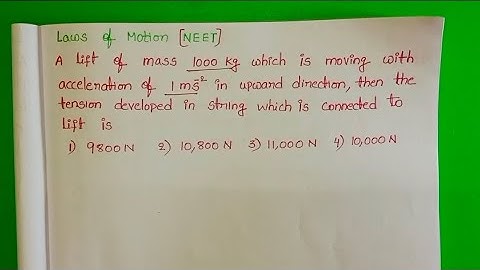 Laws of Motion [NEET]
A lift of mass 1000 kg which is moving with
acceleration of 1 ms⁻² in upward direction, then the
tension developed in string which is connected to
lift is
1) 9800 N 2) 10,800 N 3) 11,000 N 4) 10,000 N